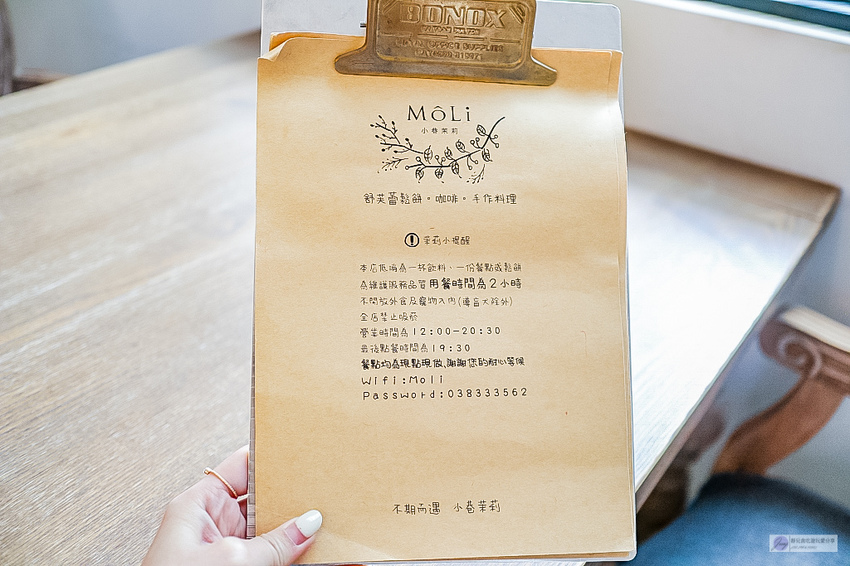 BONOX
MôLi
小巷茉莉
舒芙蕾鬆餅。咖啡。手作料理
茉莉小提醒
本店低消為一杯飲料、一份餐點或鬆餅
為維護服務品質用餐時間為2小時
不開放外食及寵物入內(導盲犬除外)
全店禁止吸菸
營業時間為12:00-20:30
最後點餐時間為19:30
餐點均為現點現做,謝謝您的耐心等候
Wifi:Moli
Password:038333562
不期而遇 小巷茉莉